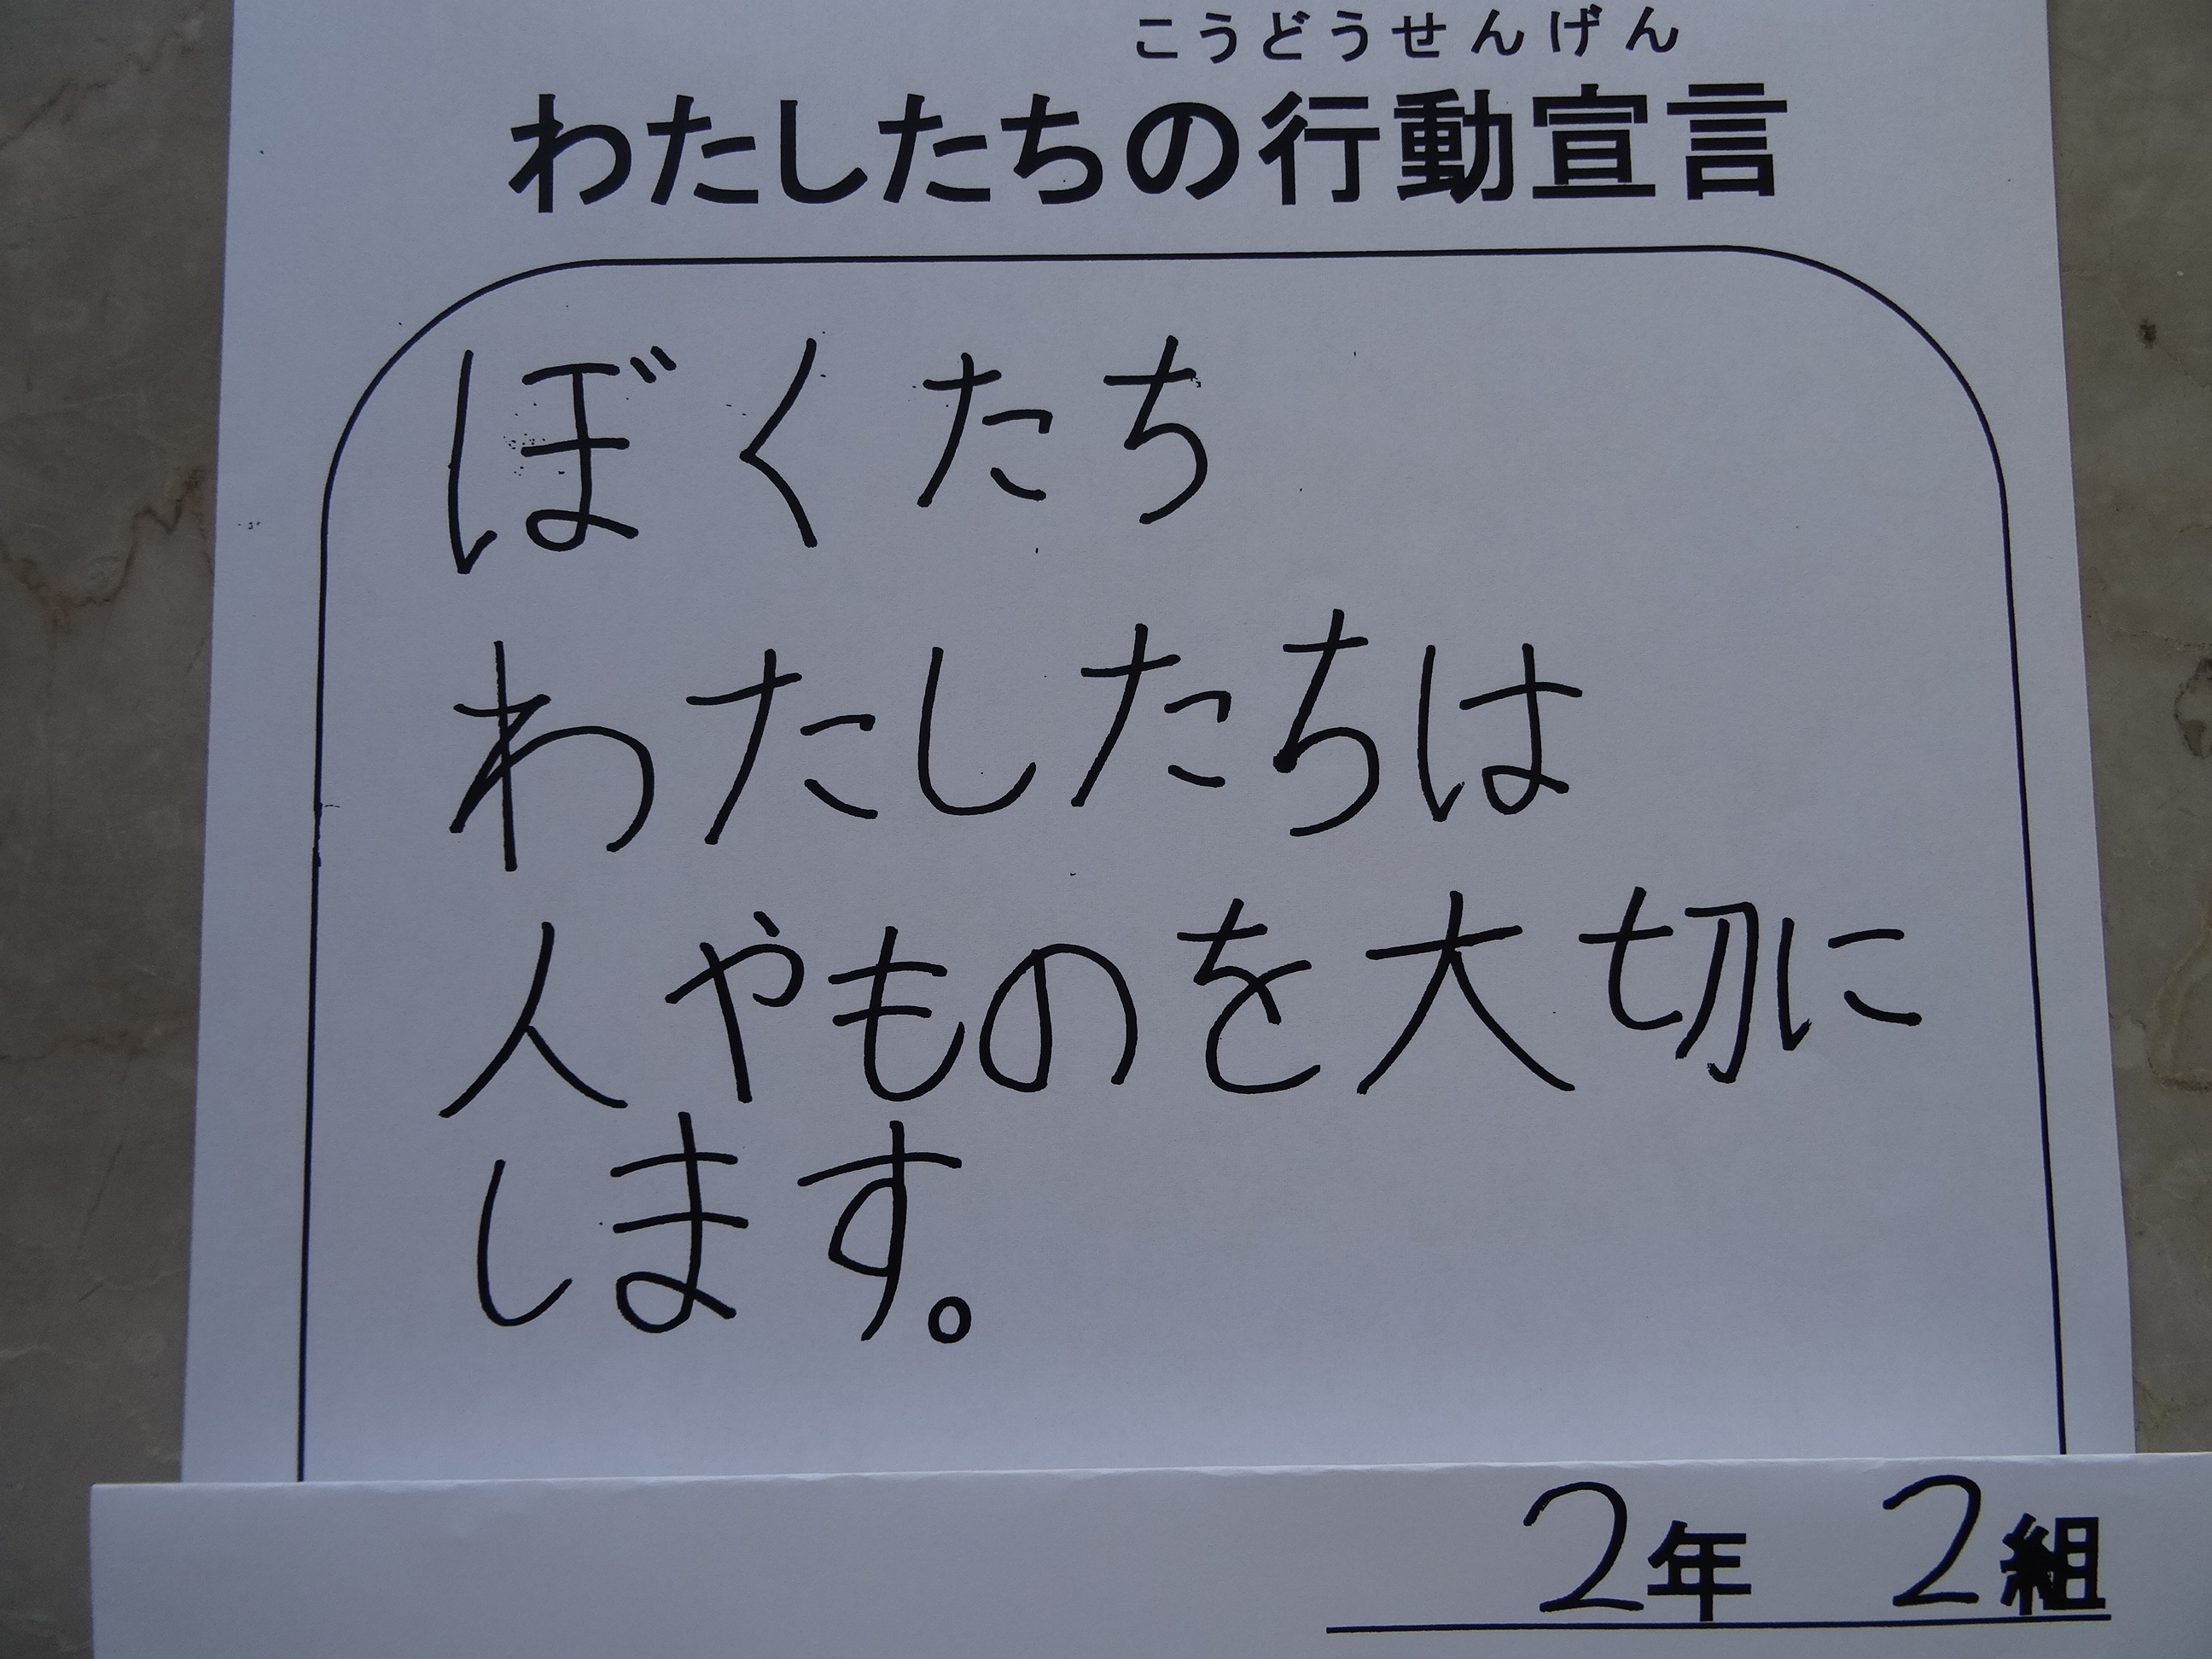 こうどうせんげん
わたしたちの行動宣言
ぼくたち
わたしたちは
人やものを大切に
します。
2年 2組